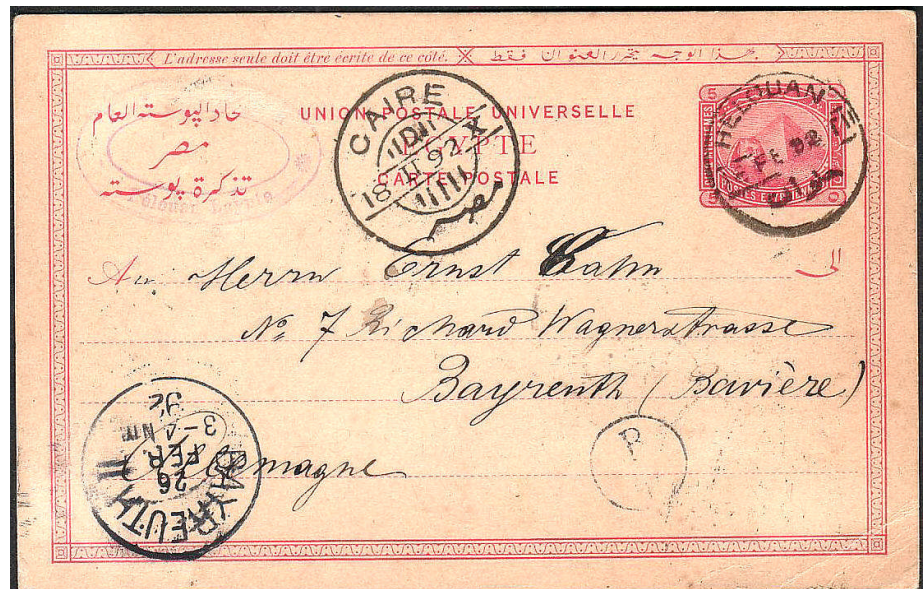 L'adresse seule doit être écrite de ce côté. بهذا الوجه يحرر العنوان فقط
اتحاد البوسته العام
مصر
تذكرة بوسته
UNION POSTALE UNIVERSELLE
EGYPTE
CARTE POSTALE
CAIRE
18 II 92 X
مصر
5 5
HELOUAN
FE 92
حلوان
An Herrn Ernst Cahn
الى
No 7 Richard Wagnerstrasse
Bayreuth (Bavière)
Allemagne
BAYREUTH II
26
FEB
3-4 Nm
92
R